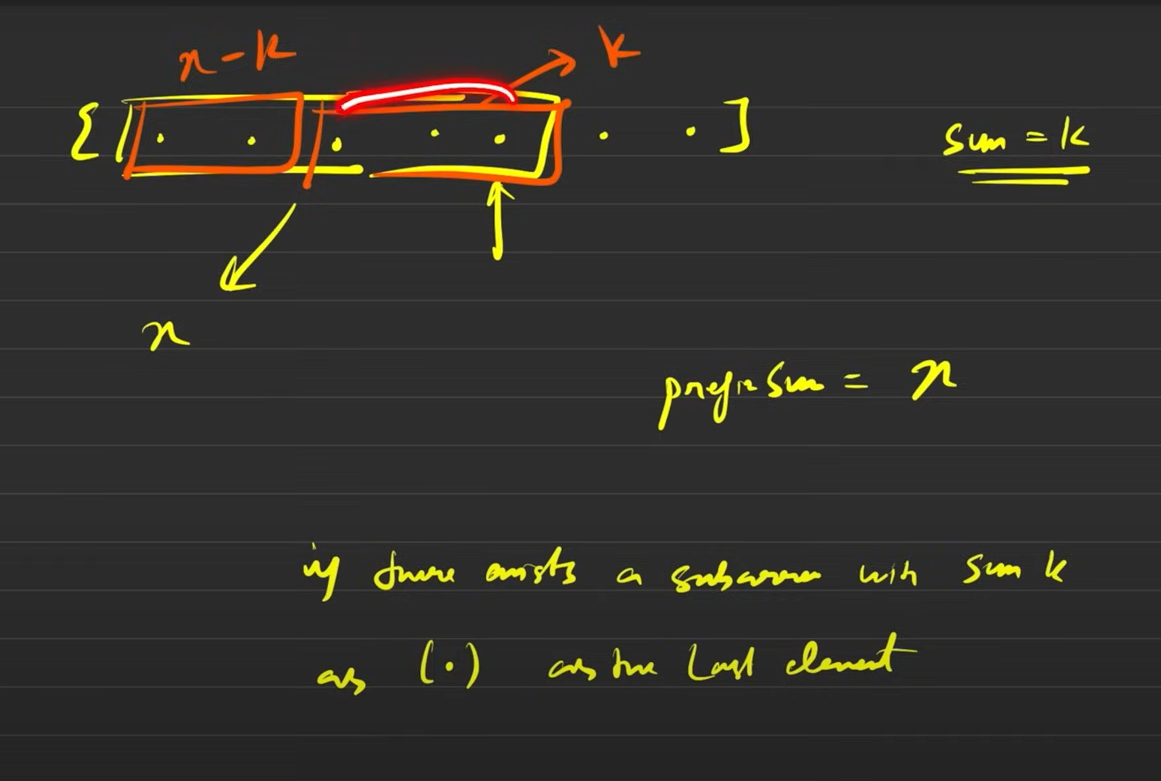 x - k
k
{ [ . . . . . . . ]
sum = k
x
prefix sum = x
if there exists a subarray with sum k
as (.) as the last element